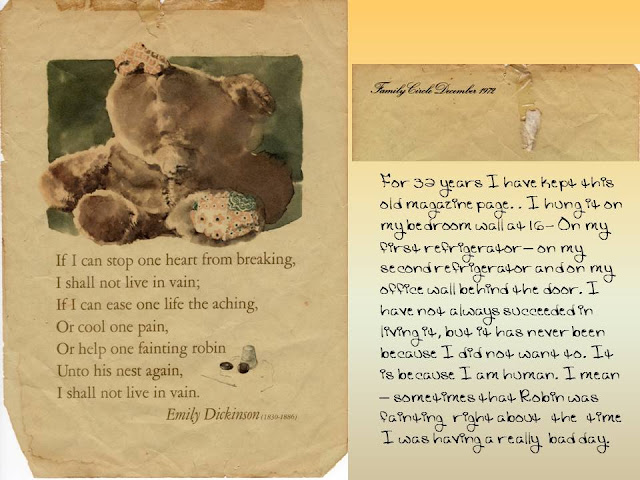 If I can stop one heart from breaking,
I shall not live in vain;
If I can ease one life the aching,
Or cool one pain,
Or help one fainting robin
Unto his nest again,
I shall not live in vain.
Emily Dickinson (1830-1886)
Family Circle December 1972
For 32 years I have kept this
old magazine page.. I hung it on
my bedroom wall at 16- On my
first refrigerator – on my
second refrigerator and on my
office wall behind the door. I
have not always succeeded in
living it, but it has never been
because I did not want to. It
is because I am human. I mean
– sometimes that Robin was
fainting right about the time
I was having a really bad day.